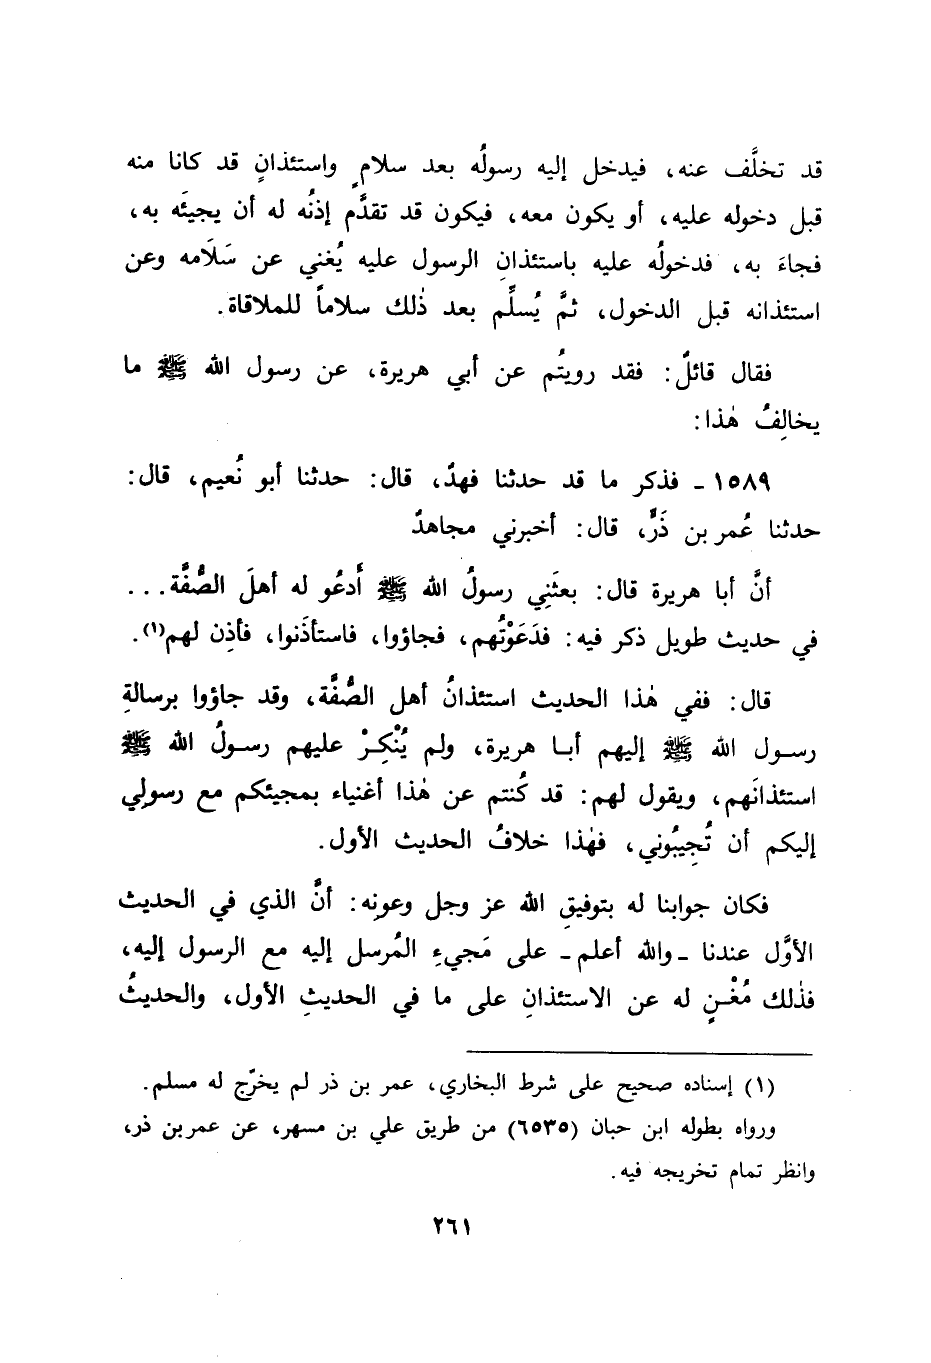 قد تخلَّف عنه، فيدخل إليه رسولُه بعد سلامٍ واستئذانٍ قد كانا منه
قبل دخوله عليه، أو يكون معه، فيكون قد تقدَّم إذنُه له أن يجيئَه به،
فجاءَ به، فدخولُه عليه باستئذانِ الرسول عليه يُغني عن سَلَامه وعن
استئذانه قبل الدخول، ثمَّ يُسلِّم بعد ذٰلك سلاماً للملاقاة.
فقال قائلٌ: فقد رويتُم عن أبي هريرة، عن رسول الله ﷺ ما
يخالِفُ هٰذا:
١٥٨٩ - فذكر ما قد حدثنا فهدٌ، قال: حدثنا أبو نُعيم، قال:
حدثنا عُمر بن ذَرٍّ، قال: أخبرني مجاهدٌ
أنَّ أبا هريرة قال: بعثَنِي رسولُ الله ﷺ أَدعُو له أهلَ الصُّفَّة...
في حديث طويل ذكر فيه: فدَعَوْتُهم، فجاؤوا، فاستأذَنوا، فأذِن لهم(١).
قال: ففي هٰذا الحديث استئذانُ أهل الصُّفَّة، وقد جاؤوا برسالةِ
رسول الله ﷺ إليهم أبا هريرة، ولم يُنْكِرْ عليهم رسولُ الله ﷺ
استئذانَهم، ويقول لهم: قد كُنتم عن هٰذا أغنياء بمجيئكم مع رسولِي
إليكم أن تُجِيبُوني، فهٰذا خلافُ الحديث الأول.
فكان جوابنا له بتوفيقِ الله عز وجل وعونِه: أنَّ الذي في الحديث
الأوَّل عندنا -والله أعلم- على مَجيءِ المُرسل إليه مع الرسول إليه،
فذٰلك مُغْنٍ له عن الاستئذانِ على ما في الحديثِ الأول، والحديثُ
(١) إسناده صحيح على شرط البخاري، عمر بن ذر لم يخرّج له مسلم.
ورواه بطوله ابن حبان (٦٥٣٥) من طريق علي بن مسهر، عن عمر بن ذر،
وانظر تمام تخريجه فيه.
٢٦١